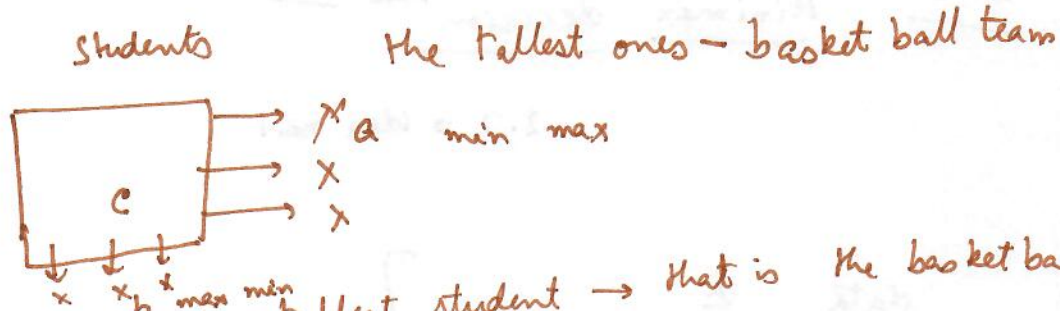 Students the tallest ones - basket ball team
X a min max
X
C X
x x x max min
b tallest student → that is the basket ba